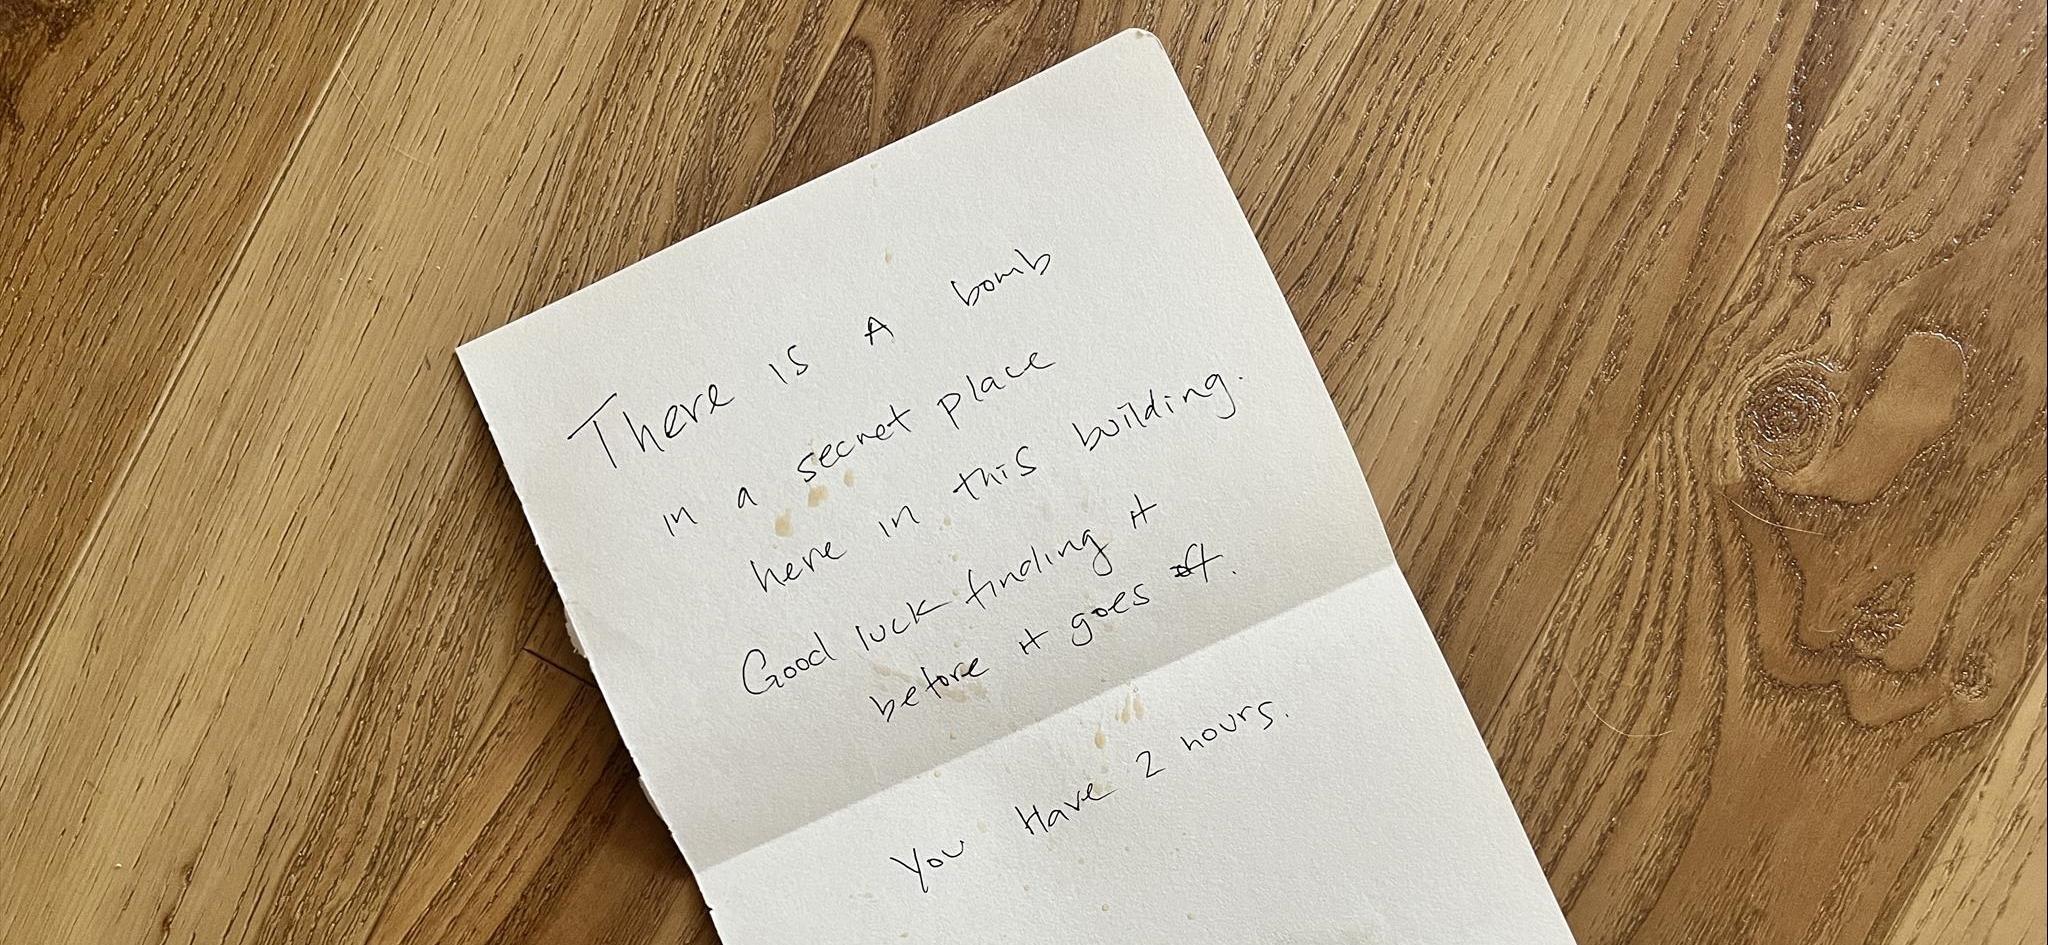 There is A bomb
in a secret place
here in this building.
Good luck finding it
before it goes off.
You Have 2 hours.